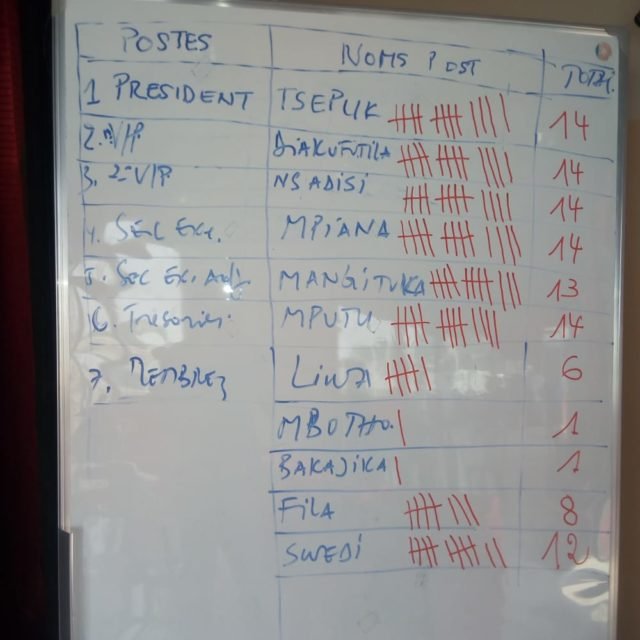 POSTES NOMS POST TOTAL
1 PRESIDENT TSEPUK 14
2. V/P DIAKUNTILA 14
3. 2e V/P NSADISI 14
4. SEC EXE. MPIANA 14
5. SEC EX. Adj. MANGITUKA 13
6. Tresorier MPUTU 14
7. MEMBRES LINZA 6
MBOTHO. 1
BAKAJIKA 1
FILA 8
SWEDI 12